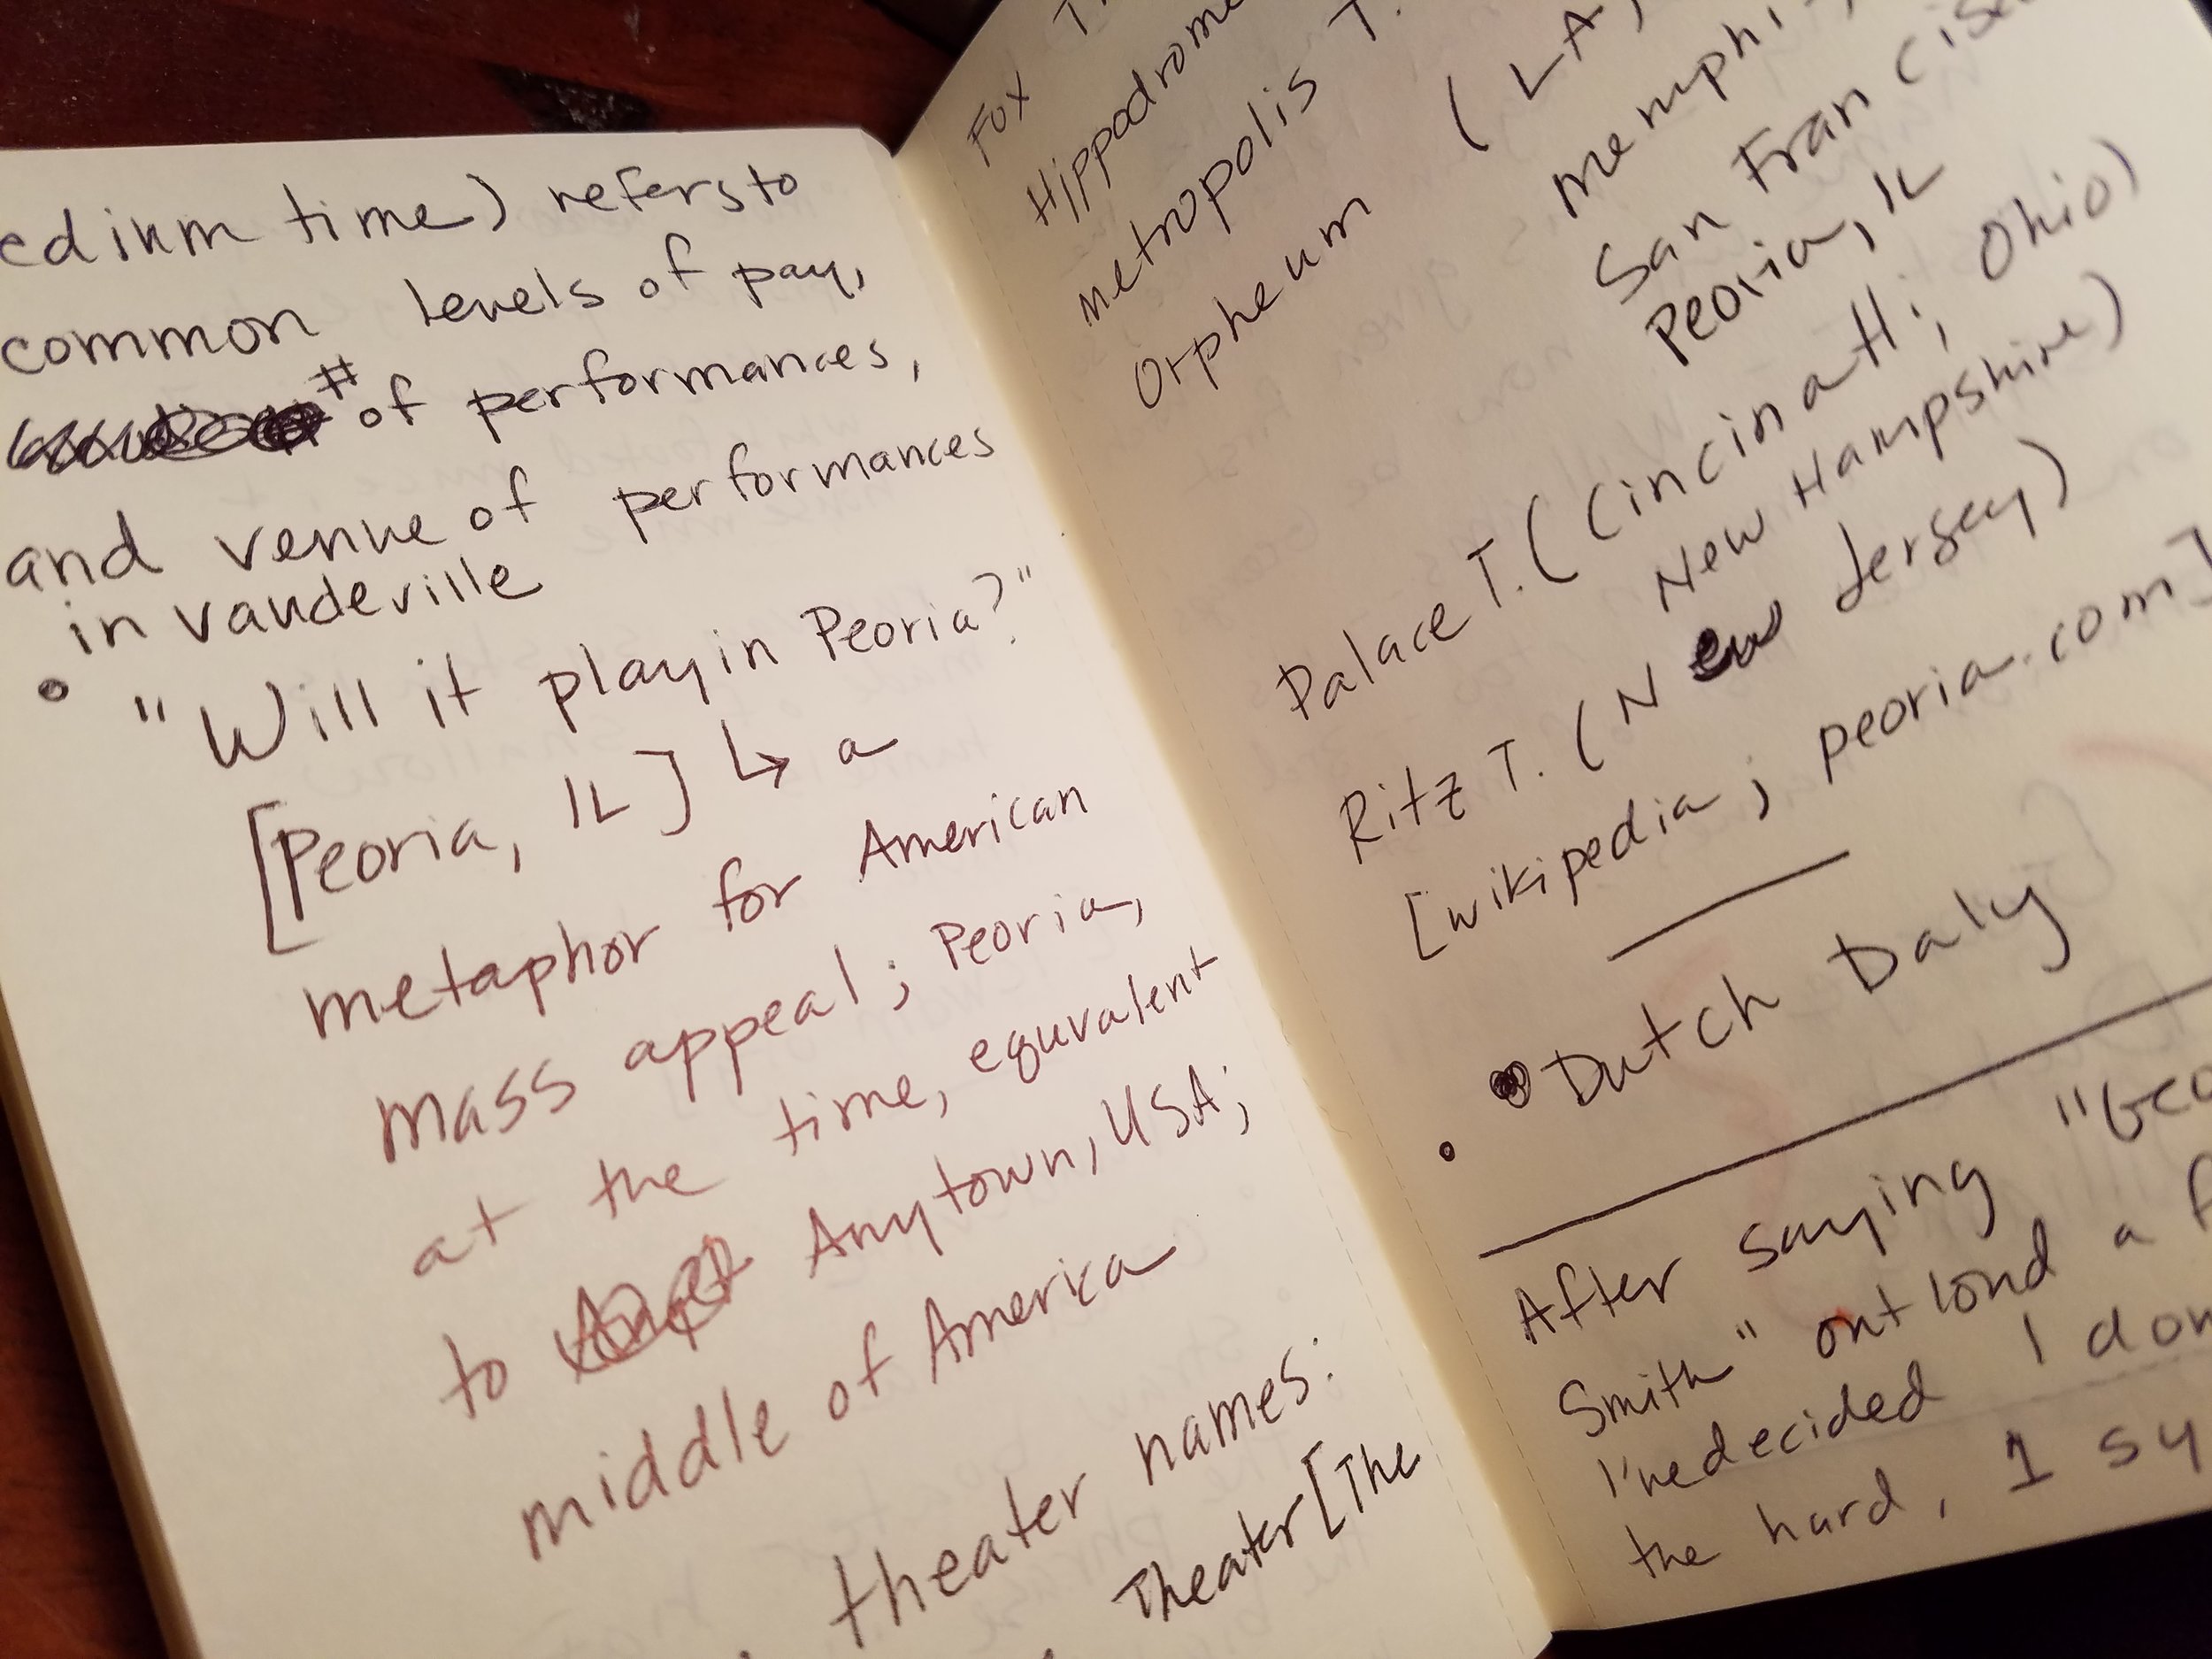 edium time) refers to
common levels of pay,
# of performances,
and venue of performances
in vaudeville
• "Will it play in Peoria?"
[Peoria, IL] ↳ a
metaphor for American
mass appeal; Peoria,
at the time, equivalent
to Anytown, USA;
middle of America
theater names:
Theater [The
Fox T.
Hippodrome
metropolis T.
Orpheum (LA,
memphi
San Francis
Peoria, IL
Palace T. (Cincinatti, Ohio)
New Hampshire)
Ritz T. (New Jersey)
[wikipedia; peoria.com]
Dutch Daly
•
After saying "Geo
Smith" out loud a f
I've decided I don
the hard, 1 sy